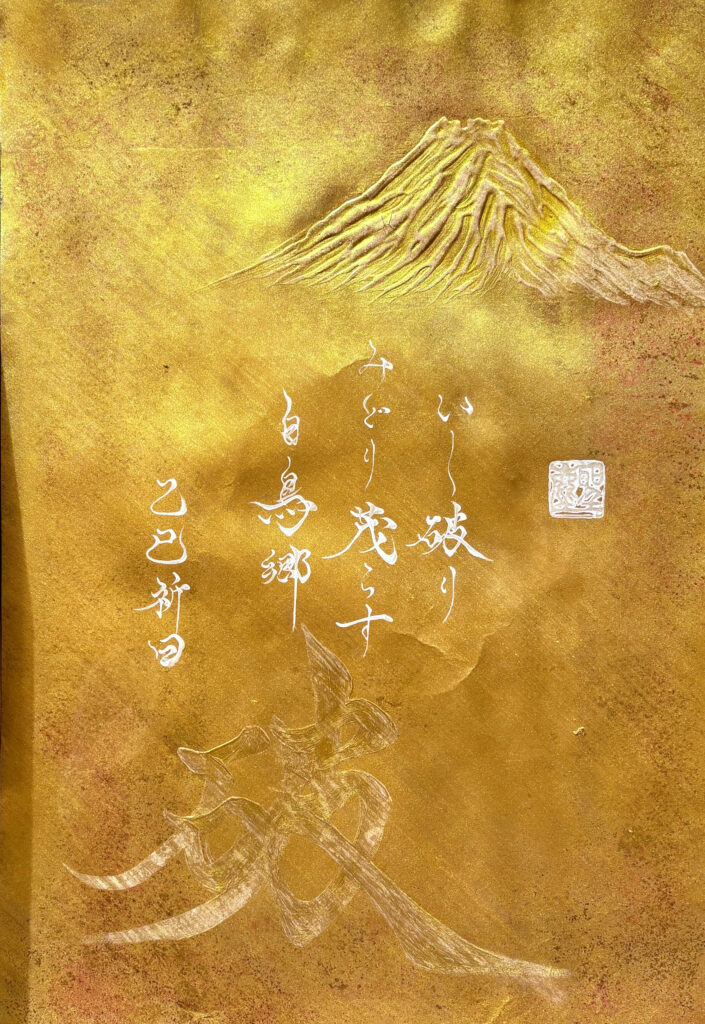 いし破り
みどり茂らす
白鳥郷
乙巳祈白
破